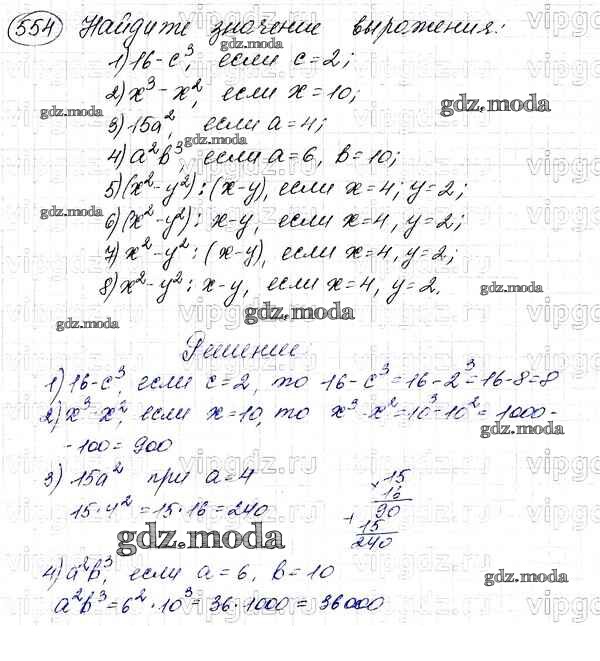 554 Найдите значение выражения:
1) 16-c³, если c=2;
2) x³-x², если x=10;
3) 15a², если a=4;
4) a²b³, если a=6, b=10;
5) (x²-y²):(x-y), если x=4; y=2;
6) (x²-y²):x-y, если x=4, y=2;
7) x²-y²:(x-y), если x=4, y=2;
8) x²-y²:x-y, если x=4, y=2.
Решение:
1) 16-c³, если c=2, то 16-c³=16-2³=16-8=8
2) x³-x², если x=10, то x³-x²=10³-10²=1000-
-100=900
3) 15a² при a=4
15·4²=15·16=240
×15
16
90
+15
240
4) a²b³, если a=6, b=10
a²b³=6²·10³=36·1000=36000
gdz.moda
vipgdz.ru